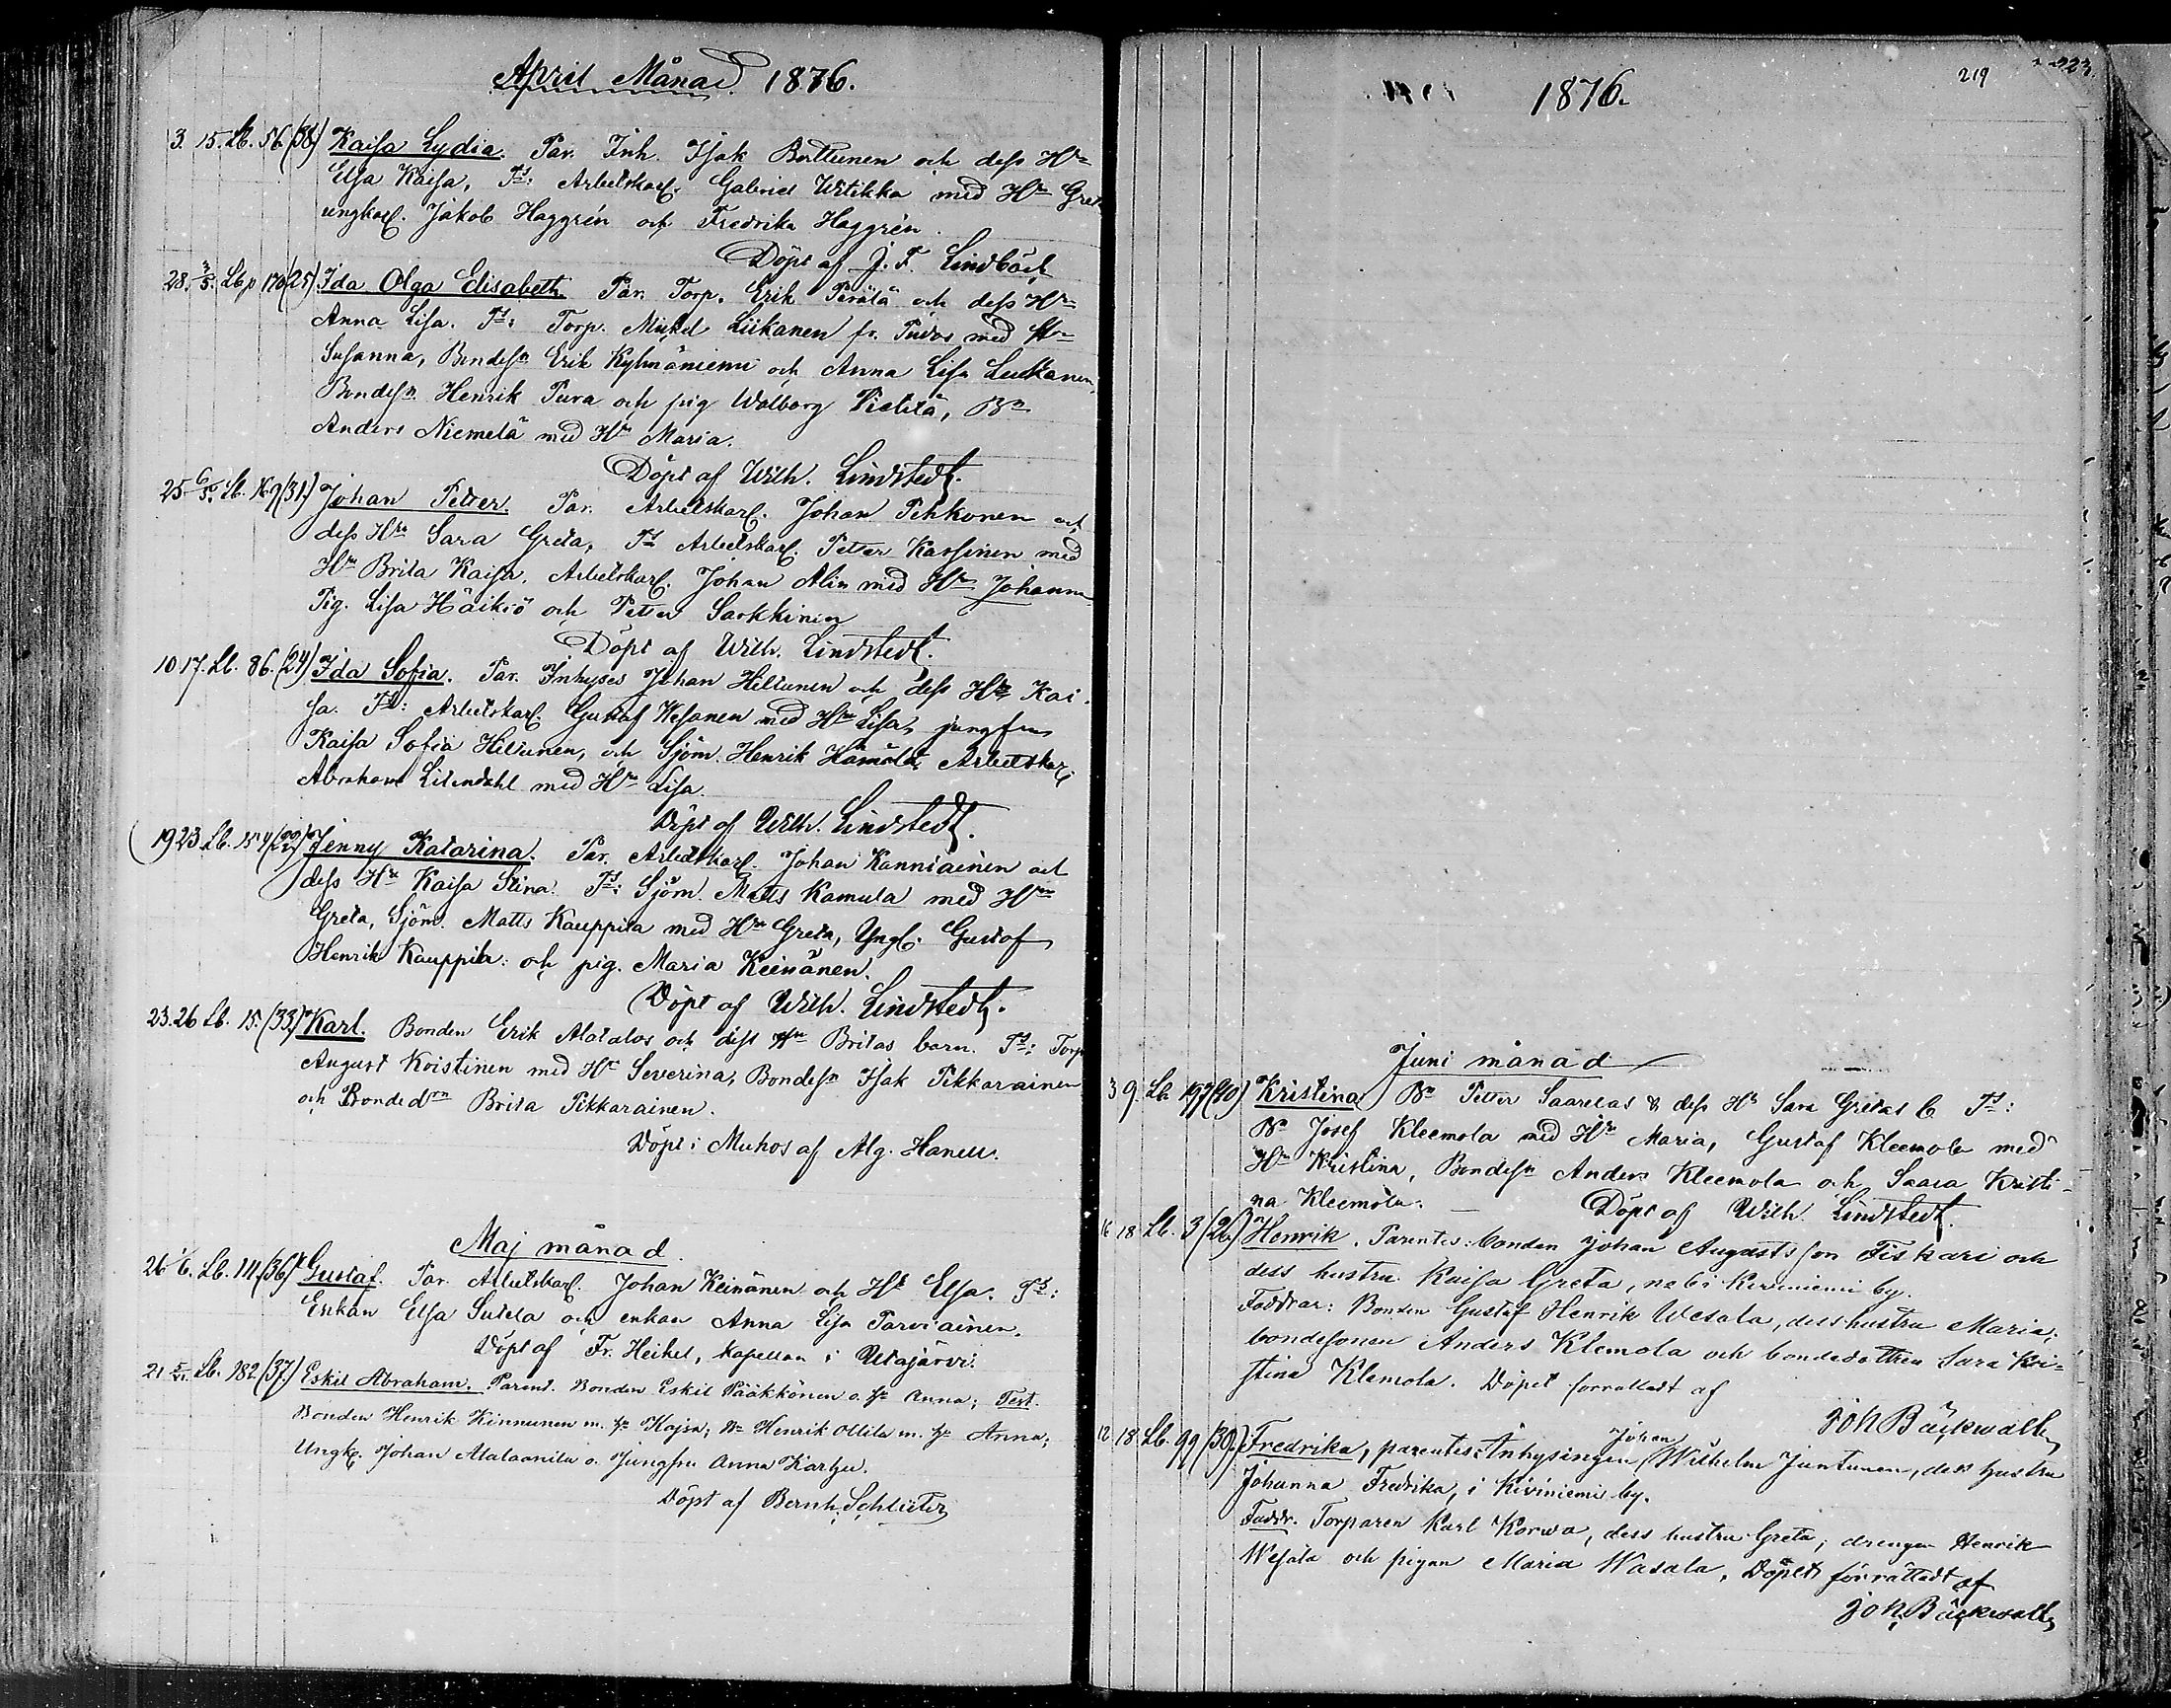 April Månad 1876.
3. 15. Lb. 56 (38) Kaisa Lydia. Par. Inh. Isak Borttunen och dess Hu
Elsa Kaisa, Ts: Arbetskarl. Gabriel Witikka med Hu Greta
ungkarl. Jakob Haggrén och Fredrika Haggrén.
Döpt af J. F. Lindbäck
28. 3/5. Lb. p 170 (25) Ida Olga Elisabeth. Par. Torp. Erik Perälä och dess Hu
Anna Lisa. Ts: Torp. Mickel Liikanen fr. Pudos med Hu
Susanna, Bondesn Erik Kylmäniemi och Anna Lisa Luckanen,
Bondesn Henrik Pura och pig Walborg Pietilä, Bn
Anders Niemelä med Hu Maria.
Döpt af Wilh. Lindstedt.
25 6/5. Lb. 169 (31.) Johan Petter. Par. Arbetskarl. Johan Pehkonen och
dess Hu Sara Greta, Ts Arbetskarl. Petter Karsinen med
Hu Brita Kaisa, Arbetskarl. Johan Alin med Hu Johanna
Pig. Lisa Häikiö och Petter Sarkkinen
Döpt af Wilh. Lindstedt.
10 17. Lb. 86. (24) Ida Sofia. Par. Inhyses Johan Hiltunen och dess Hu Kai-
sa. Ts: Arbetskarl. Gustaf Wesanen med Hu Lisa, jungfru
Kaisa Sofia Hiltunen, och Sjöm. Henrik Hämälä, Arbetskarl
Abraham Lilendahl med Hu Lisa.
Döpt af Wilh. Lindstedt.
19 23 Lb. 154 Jenny Katarina. Par. Arbetskarl. Johan Kanniainen och
dess Hu Kaisa Stina. Ts: Sjöm. Matts Kamula med Hu
Greta, Sjöm. Matts Kauppila med Hu Greta, Yngl. Gustaf
Henrik Kauppila och pig. Maria Keinänen.
Döpt af Wilh. Lindstedt.
23. 26 Lb. 15. (33) Karl. Bonden Erik Alatalos och dess Hu Britas barn. Ts: Torp
August Koistinen med Hu Severina, Bondesn Isak Pikkarainen
och Bondedrn Brita Pikkarainen.
Döpt i Muhos af Alg. Hanell.
Maj månad.
26 1/6. Lb. 111. (36) Gustaf. Par. Arbetskarl. Johan Keinänen och Hu Elsa. Ts:
Enkan Elsa Sutela och enkan Anna Lisa Parviainen.
Döpt af Fr. Heikel, kapellan i Utajärvi.
21 Lb. 182 (37.) Eskil Abraham. Parent. Bonden Eskil Pääkkönen o. hu Anna; Test.
Bonden Henrik Kinnunen m. hu Kajsa; Bn Henrik Ollila m. hu Anna;
Ungk. Johan Alalaanila o. Jungfru Anna Karhu.
Döpt af Bernh. Schlüter
1876.
219
223.
Juni månad
3 9. Lb. 197 (40) Kristina Bn Petter Saarelas & dess Hu Sara Gretas b Ts:
Bn Josef Kleemola med Hu Maria, Gustaf Kleemola med
Hu Kristina, Bondesn Anders Kleemola och Saara Kristi-
na Kleemola. — Döpt af Wilh. Lindstedt.
16 18 Lb. 3 (26) Henrik. Parentes: bonden Johan Augustsson Fiskari och
dess hustru Kaisa Greta, No 6 i Kiviniemi by.
Faddrar: Bonden Gustaf Henrik Wesala, dess hustru Maria;
bondesonen Anders Klemola och bondedottren Sara Kri-
stina Klemola. Döpet förrättadt af
Joh Bäckwall
12 18 Lb. 99 (30.) Fredrika, parentes: Inhysingen Johan Wilhelm Juntunen, dess hustru
Johanna Fredrika, i Kiviniemi by.
Faddr. Torparen Karl Korwa, dess hustru Greta, drengen Henrik
Wesala och pigan Maria Wasala, Döpet förrättadt af
Joh. Bäckwall